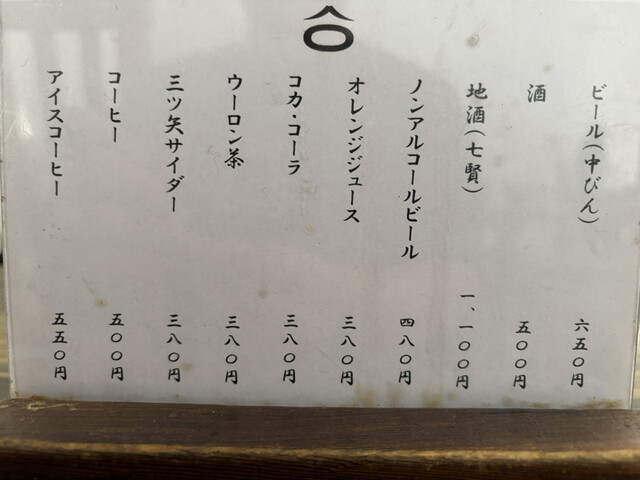 ビール（中びん） 六五〇円
酒 五〇〇円
地酒（七賢） 一、一〇〇円
ノンアルコールビール 四八〇円
オレンジジュース 三八〇円
コカ・コーラ 三八〇円
ウーロン茶 三八〇円
三ツ矢サイダー 三八〇円
コーヒー 五〇〇円
アイスコーヒー 五五〇円